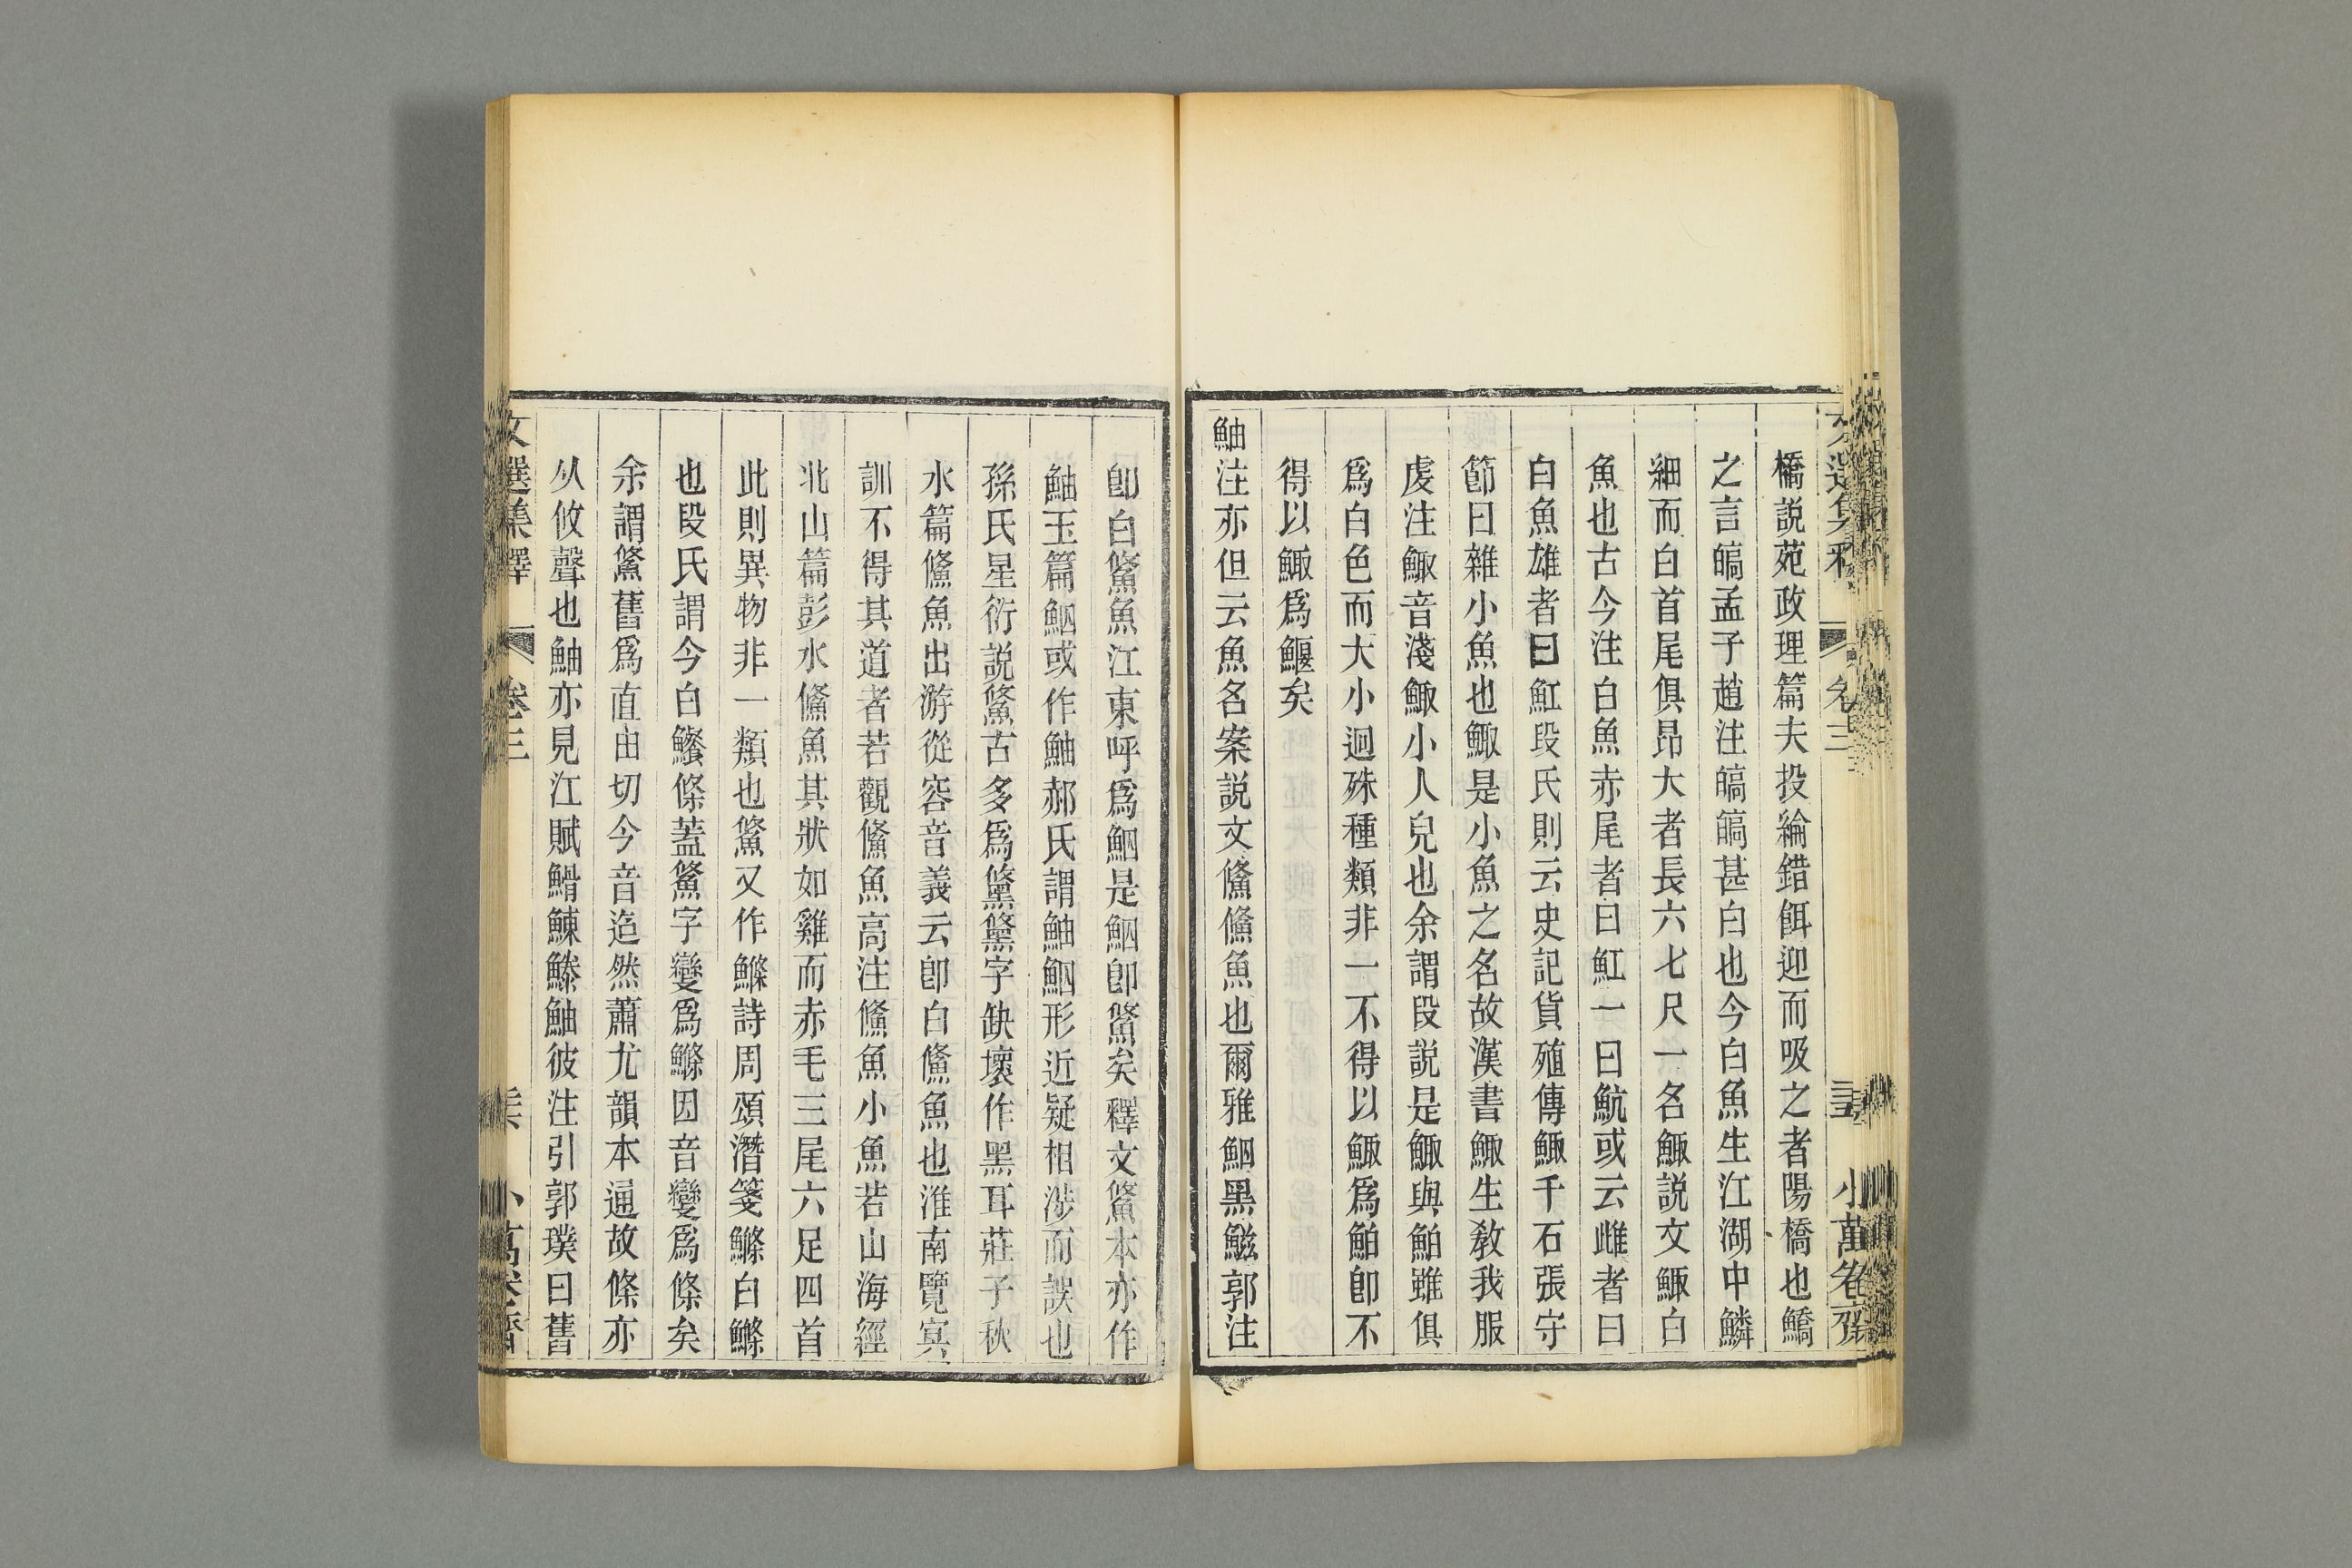 橋説苑政理篇夫投綸錯餌迎而吸之者陽橋也鱎
之言皜孟子趙注皜皜甚白也今白魚生江湖中鱗
細而白首尾俱昂大者長六七尺一名鯫説文鯫白
魚也古今注白魚赤尾者曰魟一曰魧或云雌者曰
白魚雄者曰魟段氏則云史記貨殖傳鯫千石張守
節曰雜小魚也鯫是小魚之名故漢書鯫生敎我服
虔注鯫音淺鯫小人皃也余謂段説是鯫與鮊雖俱
爲白色而大小迥殊種類非一不得以鯫爲鮊卽不
得以鯫爲鰋矣
鮋注亦但云魚名案説文鯈鯈魚也爾雅鮂黑鰦郭注
卽白鯈魚江東呼爲鮂是鮂卽鯈矣釋文鯈本亦作
鮋玉篇鮂或作鮋郝氏謂鮋鮂形近疑相涉而誤也
孫氏星衍説鯈古多爲䵛䵛字缺壞作黑耳莊子秋
水篇鯈魚出游從容音義云卽白鯈魚也淮南覽冥
訓不得其道者若觀鯈魚高注鯈魚小魚若山海經
北山篇彭水鯈魚其狀如雞而赤毛三尾六足四首
此則異物非一類也鯈又作鰷詩周頌潛箋鰷白鰷
也段氏謂今白鰵條蓋鯈字變爲鰷因音變爲條矣
余謂鯈舊爲直由切今音迢然蕭尤韻本通故條亦
从攸聲也鮋亦見江賦䱻鰊䲢鮋彼注引郭璞曰舊
文選集釋 卷三
小萬卷齋